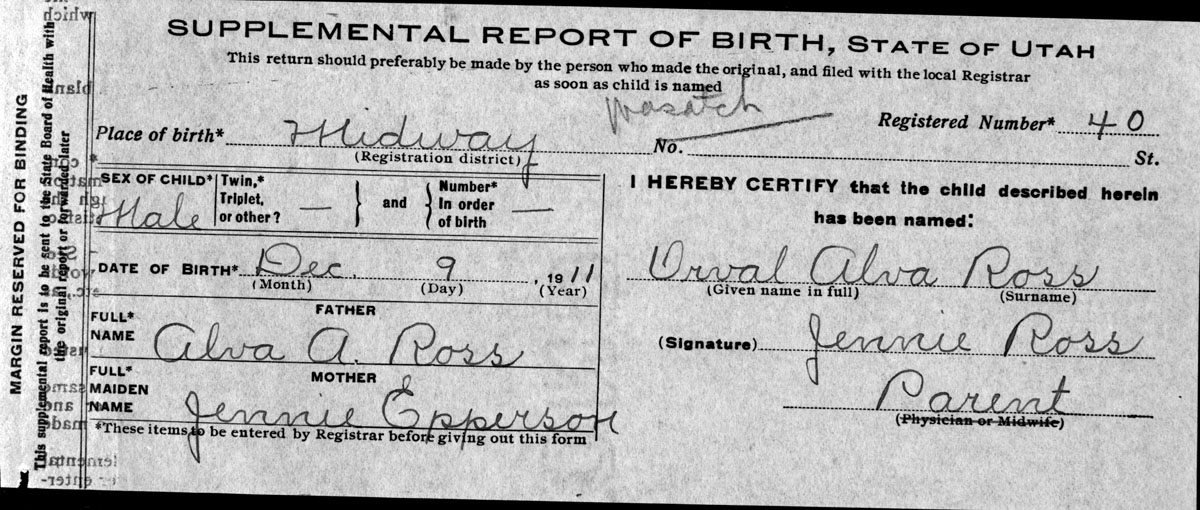 SUPPLEMENTAL REPORT OF BIRTH, STATE OF UTAH
This return should preferably be made by the person who made the original, and filed with the local Registrar
as soon as child is named
Wasatch
Place of birth* Midway No. St.
Registered Number* 40
(Registration district)
SEX OF CHILD* Male
Twin,* Triplet, or other? — and Number* In order of birth —
DATE OF BIRTH* Dec. 9, 1911
(Month) (Day) (Year)
FATHER
FULL* NAME Alva A. Ross
MOTHER
FULL* MAIDEN NAME Jennie Epperson
*These items to be entered by Registrar before giving out this form
I HEREBY CERTIFY that the child described herein
has been named:
Orval Alva Ross
(Given name in full) (Surname)
(Signature) Jennie Ross
Parent
(Physician or Midwife)
MARGIN RESERVED FOR BINDING
This supplemental report is to be sent to the State Board of Health with
the original report or forwarded later